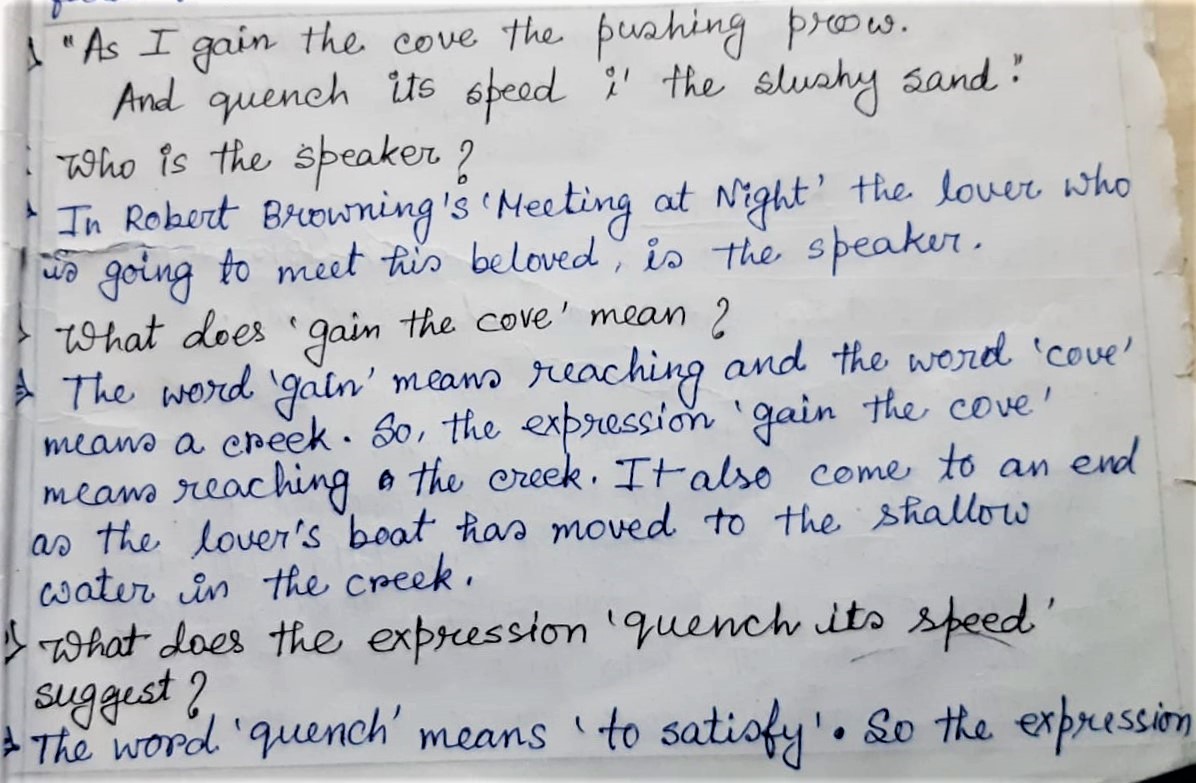 "As I gain the cove the pushing prow.
And quench its speed i' the slushy sand."
Who is the speaker?
In Robert Browning's 'Meeting at Night' the lover who
is going to meet his beloved, is the speaker.
What does 'gain the cove' mean?
The word 'gain' means reaching and the word 'cove'
means a creek. So, the expression 'gain the cove'
means reaching the creek. It also come to an end
as the lover's boat has moved to the shallow
water in the creek.
What does the expression 'quench its speed'
suggest?
The word 'quench' means 'to satisfy'. So the expression